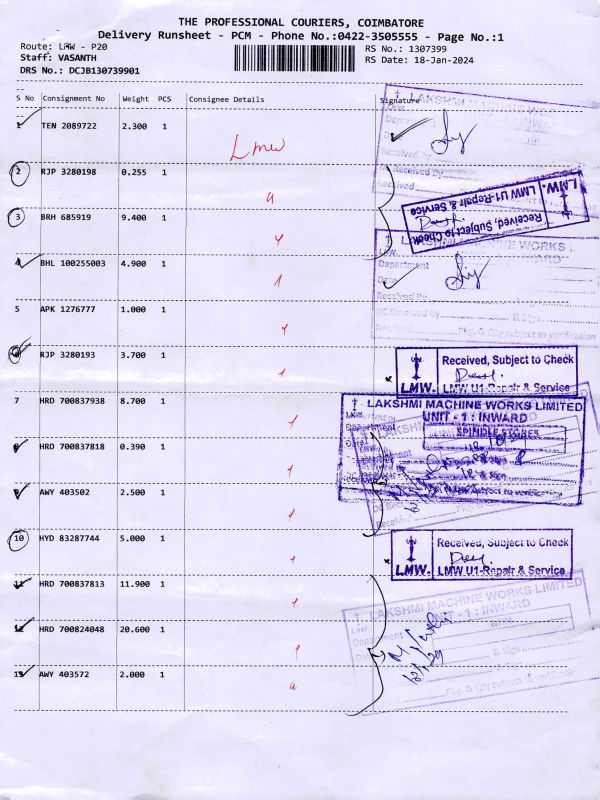 THE PROFESSIONAL COURIERS, COIMBATORE
Delivery Runsheet - PCM - Phone No.:0422-3505555 - Page No.:1
Route: LMW - P20 RS No.: 1307399
Staff: VASANTH RS Date: 18-Jan-2024
DRS No.: DCJB130739901
S No Consignment No Weight PCS Consignee Details Signature
1 TEN 2089722 2.300 1
Lmw
2 RJP 3280198 0.255 1
3 BRH 685919 9.400 1
4 BHL 100255003 4.900 1
5 APK 1276777 1.000 1
6 RJP 3280193 3.700 1
7 HRD 700837938 8.700 1
8 HRD 700837818 0.390 1
9 AWY 403502 2.500 1
10 HYD 83287744 5.000 1
11 HRD 700837813 11.900 1
12 HRD 700824048 20.600 1
13 AWY 403572 2.000 1
LAKSHMI
Received By
Received
LMW.
Received, Subject to Check
LMW U1-Repair & Service
LAKSHMI MACHINE WORKS
INWARD
Department
Date
Received By
DC Received By
Received Pkg. & Qty subject to verification
LMW.
Received, Subject to Check
LMW U1-Repair & Service
LAKSHMI MACHINE WORKS LIMITED
UNIT - 1 : INWARD
SPINDLE STORES
LMW.
Received, Subject to Check
LMW U1-Repair & Service
LAKSHMI MACHINE WORKS LIMITED
UNIT - 1 : INWARD
Department
& Sign